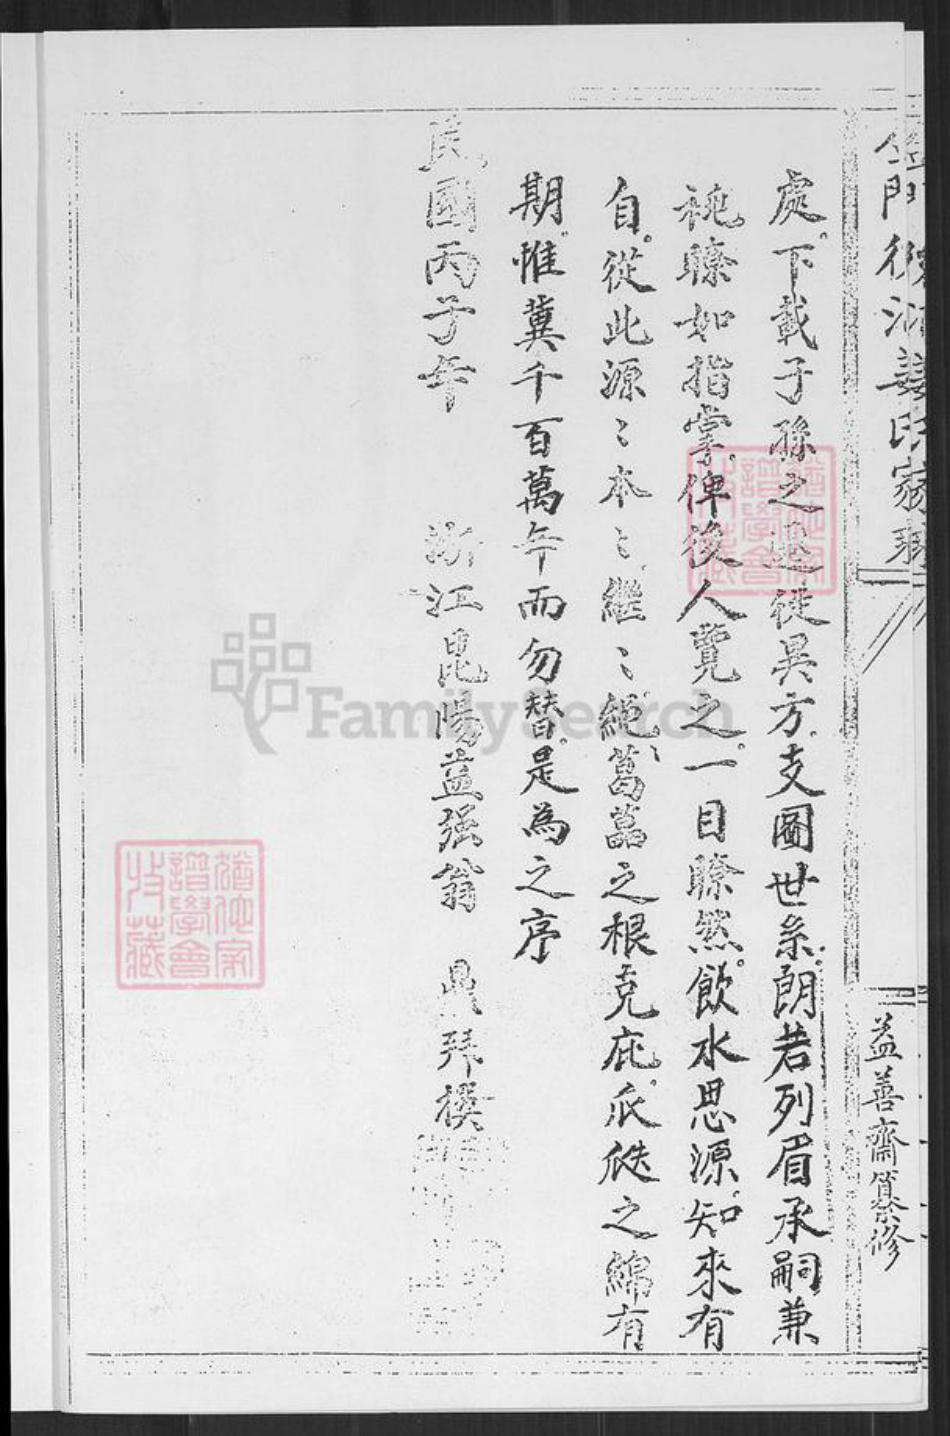 門後 姜氏家
益善齋纂修
處。下載子孫之遷徙異方。支圖世系。朗若列眉承嗣兼
祧瞭如指掌。俾後人覽之。一目瞭然。飲水思源。知來有
自。從此源〻本〻。繼〻繩〻。葛藟之根克庇。瓜瓞之綿有
期。惟冀千百萬年而勿替。是為之序
民國丙子年 浙江昆陽益强翁 鼎拜撰
譜學會
收藏
譜學會
收藏
FamilySearch